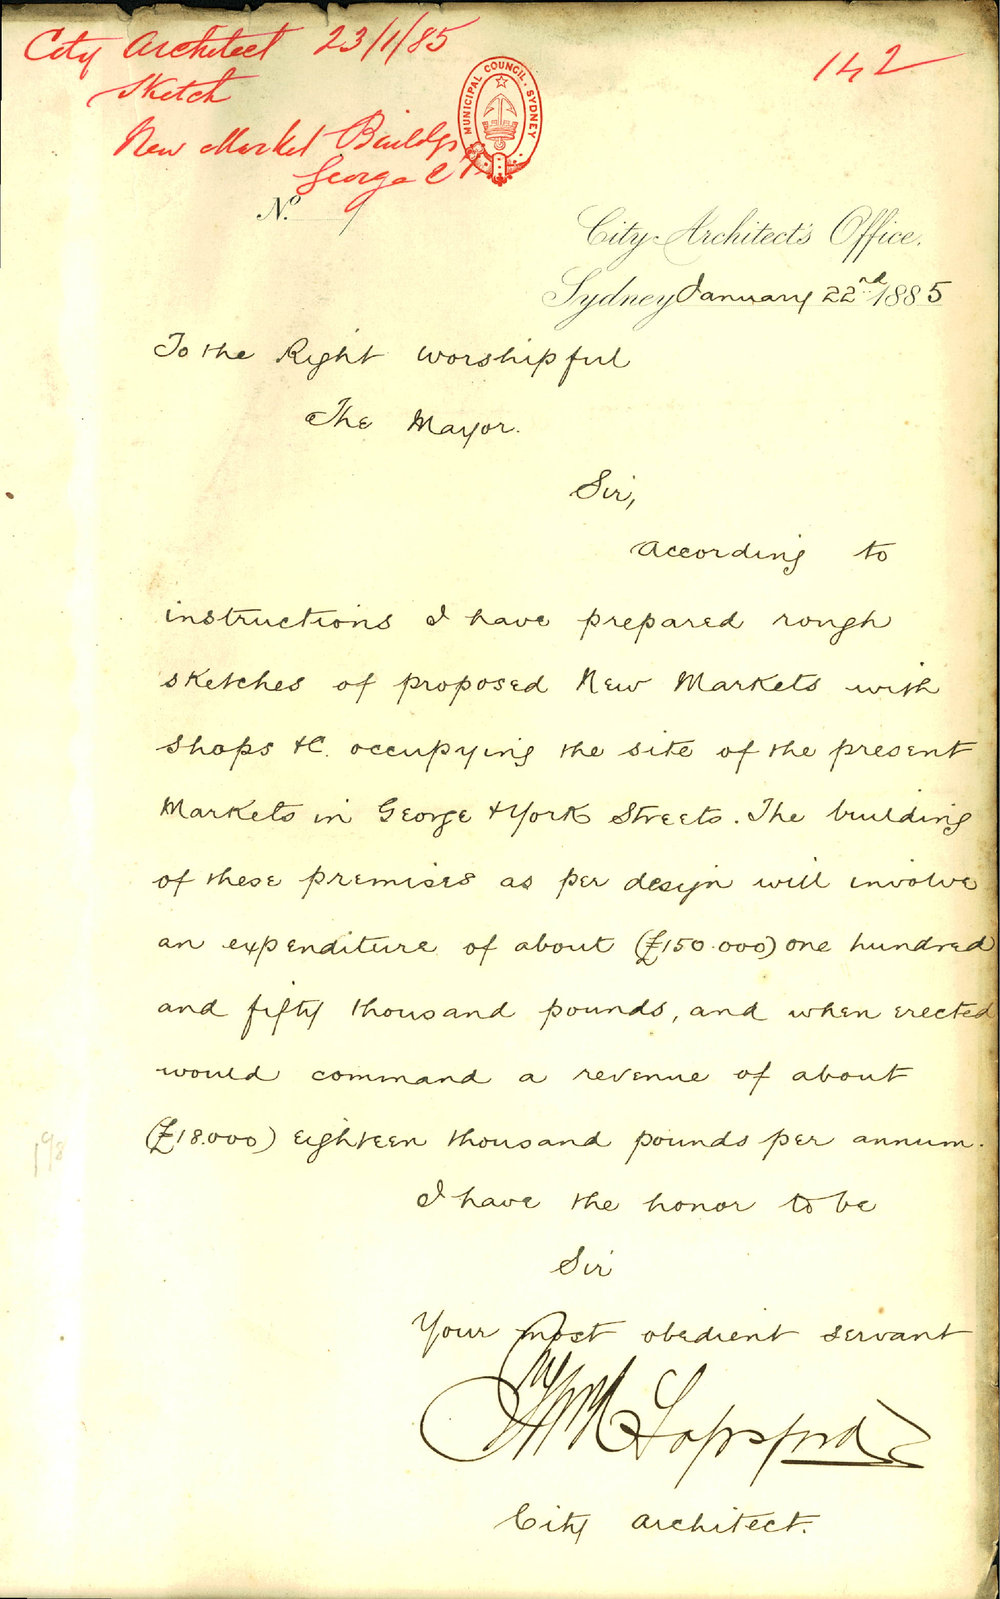 City Architect 23/1/85
142
Sketch
New Market Buildgs
George St
MUNICIPAL COUNCIL. SYDNEY
No.
City Architect's Office.
Sydney January 22nd 1885
To the Right Worshipful
The Mayor.
Sir,
According to
instructions I have prepared rough
sketches of proposed New Markets with
Shops &c. occupying the site of the present
Markets in George & York Streets. The building
of these premises as per design will involve
an expenditure of about (£150.000) one hundred
and fifty thousand pounds, and when erected
would command a revenue of about
(£18.000) eighteen thousand pounds per annum.
I have the honor to be
Sir
Your most obedient servant
City Architect.